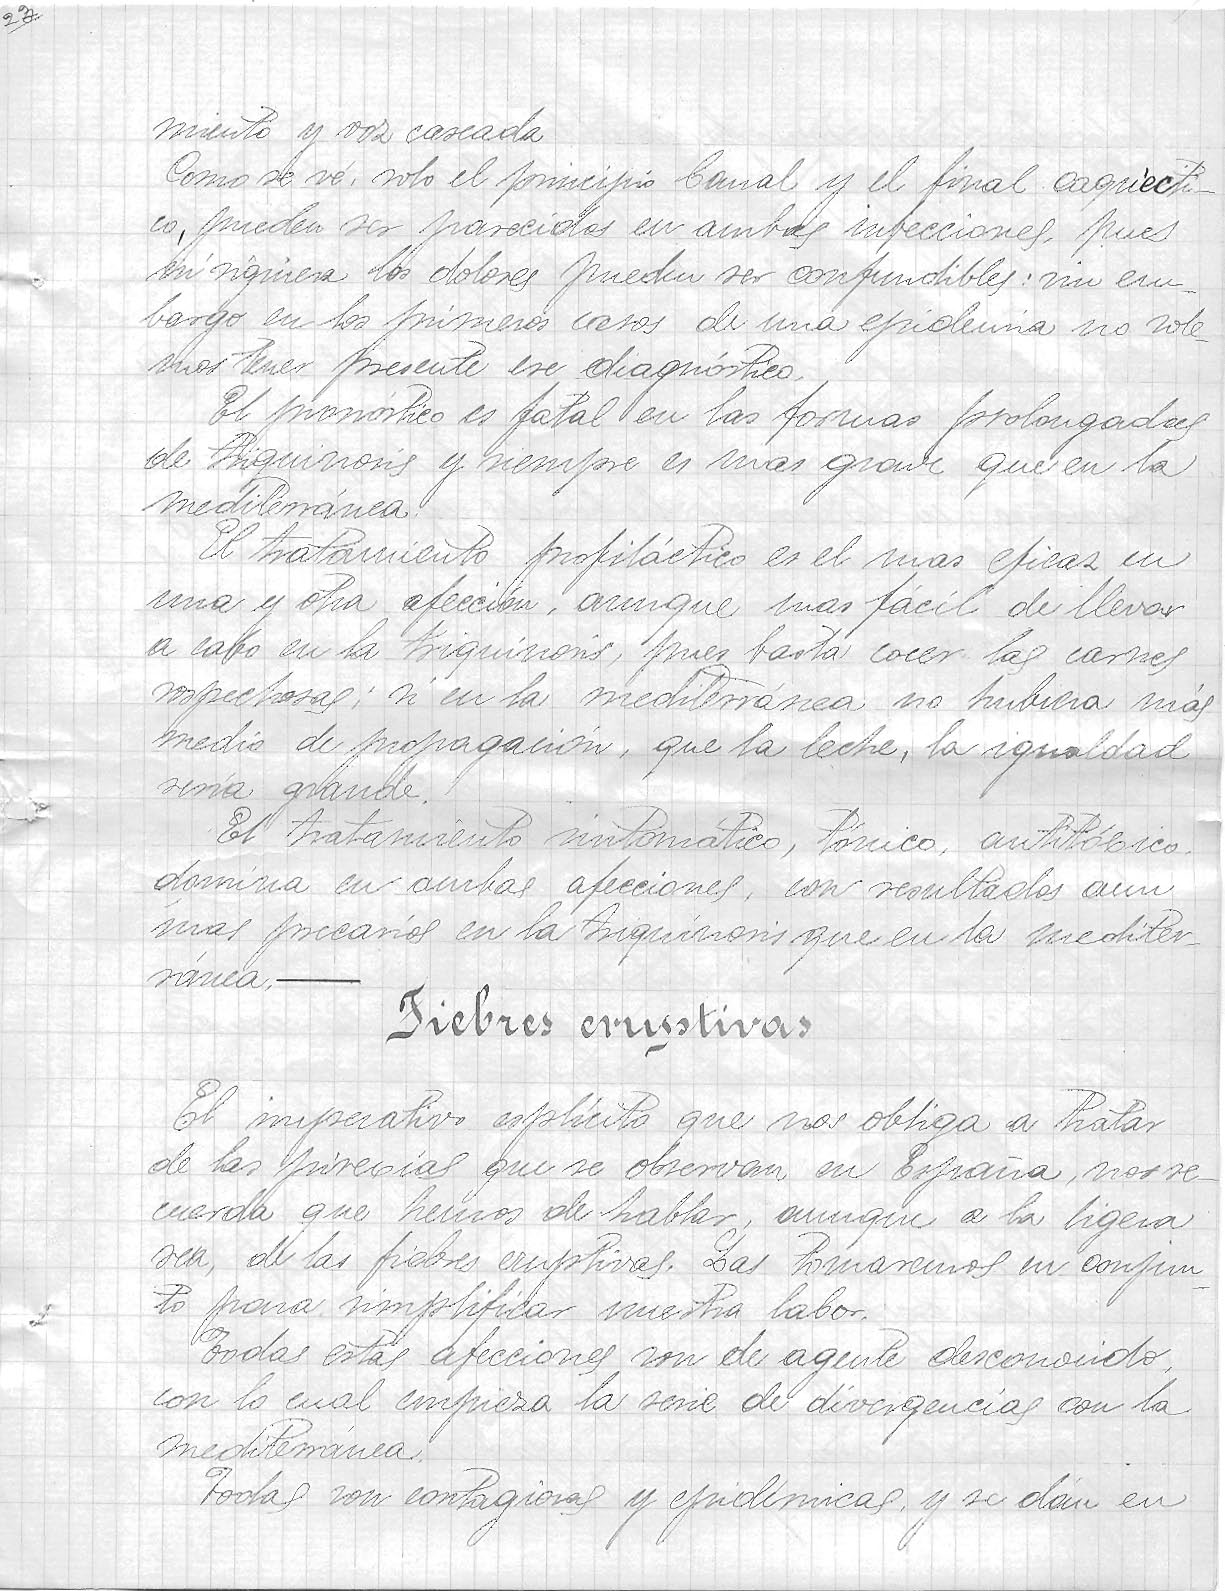 27
miento y voz cascada
Como se vé, solo el principio banal y el final caquécti-
co, pueden ser parecidos en ambas infecciones, pues
ni siquiera los dolores pueden ser confundibles: sin em-
bargo en los primeros casos de una epidemia no sole-
mos tener presente ese diagnóstico.
El pronóstico es fatal en las formas prolongadas
de triquinosis y siempre es mas grave que en la
mediterránea.
El tratamiento profiláctico es el mas eficaz en
una y otra afección, aunque mas fácil de llevar
a cabo en la triquinosis, pues basta cocer las carnes
sospechosas; si en la mediterránea no hubiera más
medio de propagación, que la leche, la igualdad
sería grande.
El tratamiento sintomático, tónico, antitóxico,
domina en ambas afecciones, con resultados aun
mas precarios en la triquinosis que en la mediter-
ránea.
Fiebres eruptivas
El imperativo esplícito que nos obliga a tratar
de las pirexias que se observan en España, nos re-
cuerda que hemos de hablar, aunque a la ligera
sea, de las fiebres eruptivas. Las tomaremos en conjun-
to para simplificar nuestra labor.
Todas estas afecciones son de agente desconocido,
con lo cual empieza la serie de divergencias con la
mediterránea.
Todas son contagiosas y epidémicas, y se dán en